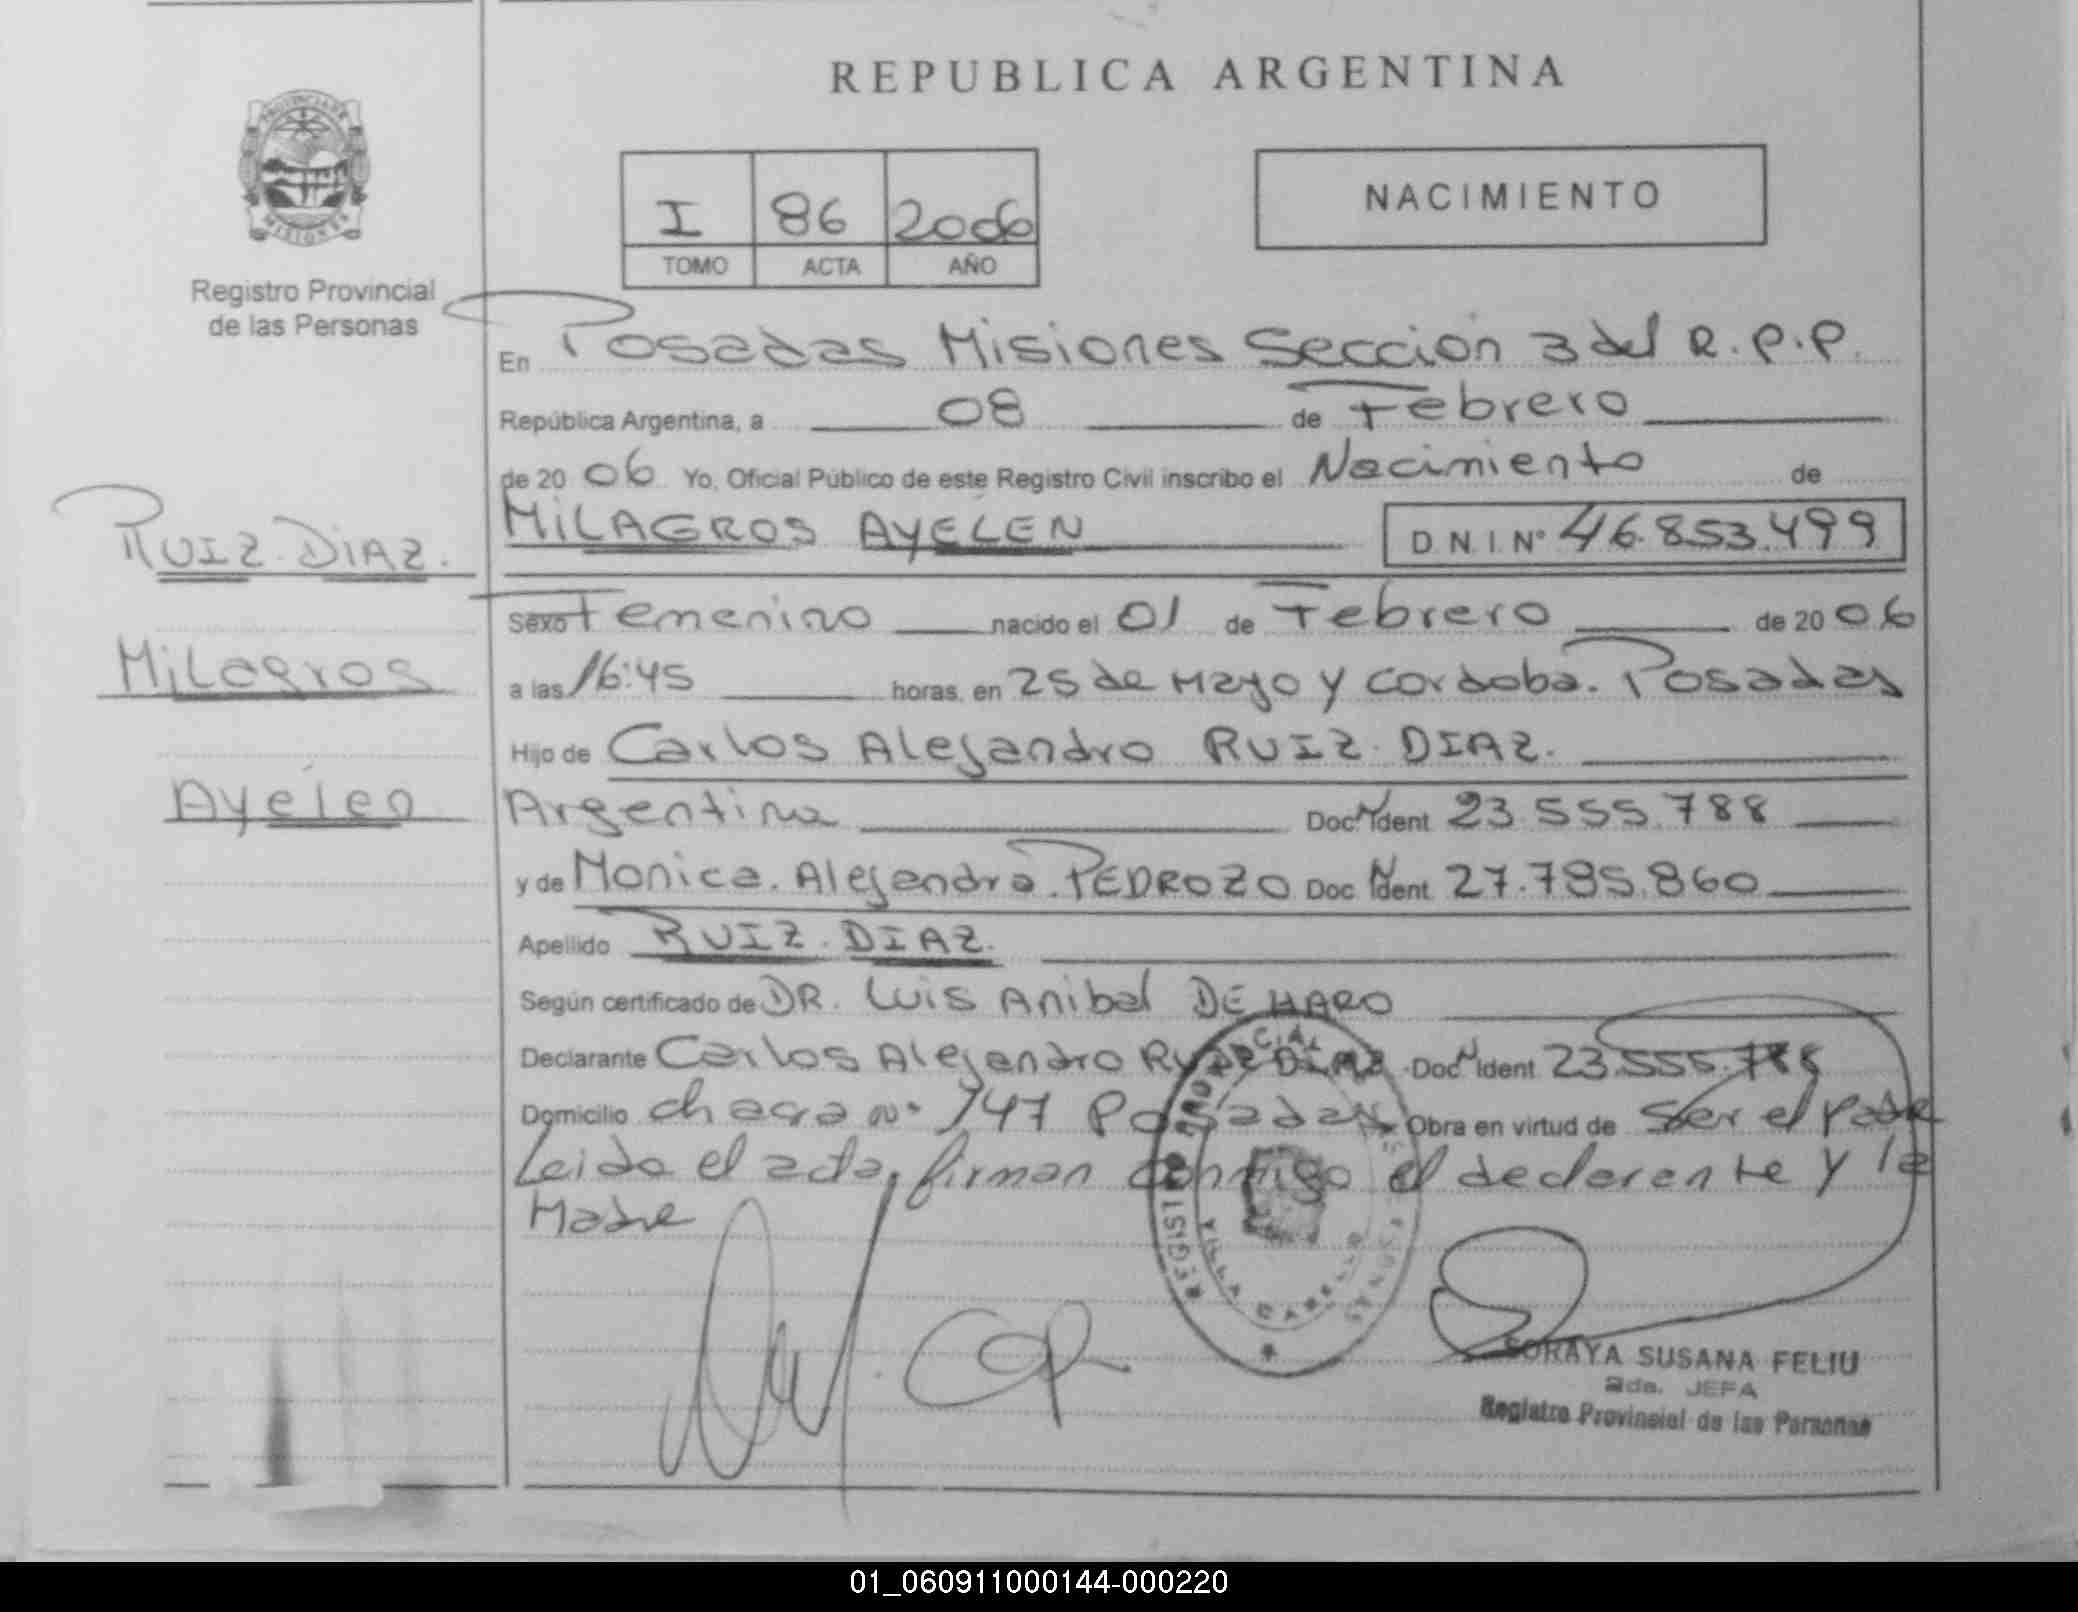 REPUBLICA ARGENTINA
PROVINCIA DE
MISIONES
Registro Provincial
de las Personas
I 86 2006
TOMO ACTA AÑO
NACIMIENTO
En Posadas Misiones Seccion 3 del R.P.P.
República Argentina, a 08 de Febrero
de 20 06 Yo, Oficial Público de este Registro Civil inscribo el Nacimiento de
RUIZ DIAZ.
MILAGROS AYELEN D.N.I. Nº 46.853.499
Sexo Femenino nacido el 01 de Febrero de 20 06
Milagros
a las 16:45 horas, en 25 de Mayo y Cordoba. Posadas
Hijo de Carlos Alejandro RUIZ DIAZ.
Ayelen
Argentina Doc. Ident 23.555.788
y de Monica. Alejandra. PEDROZO Doc Ident 27.795.860
Apellido RUIZ. DIAZ.
Según certificado de DR. Luis Anibal DE HARO
Declarante Carlos Alejandro RUIZ DIAZ Doc Ident 23.555.788
Domicilio chacra Nº 147 Posadas Obra en virtud de Ser el padre
Leida el acta, firman conmigo el declarante y la
Madre
REGISTRO PROVINCIAL
VILLA CABELLO
MISIONES
SORAYA SUSANA FELIU
2da. JEFA
Registro Provincial de las Personas
01_060911000144-000220